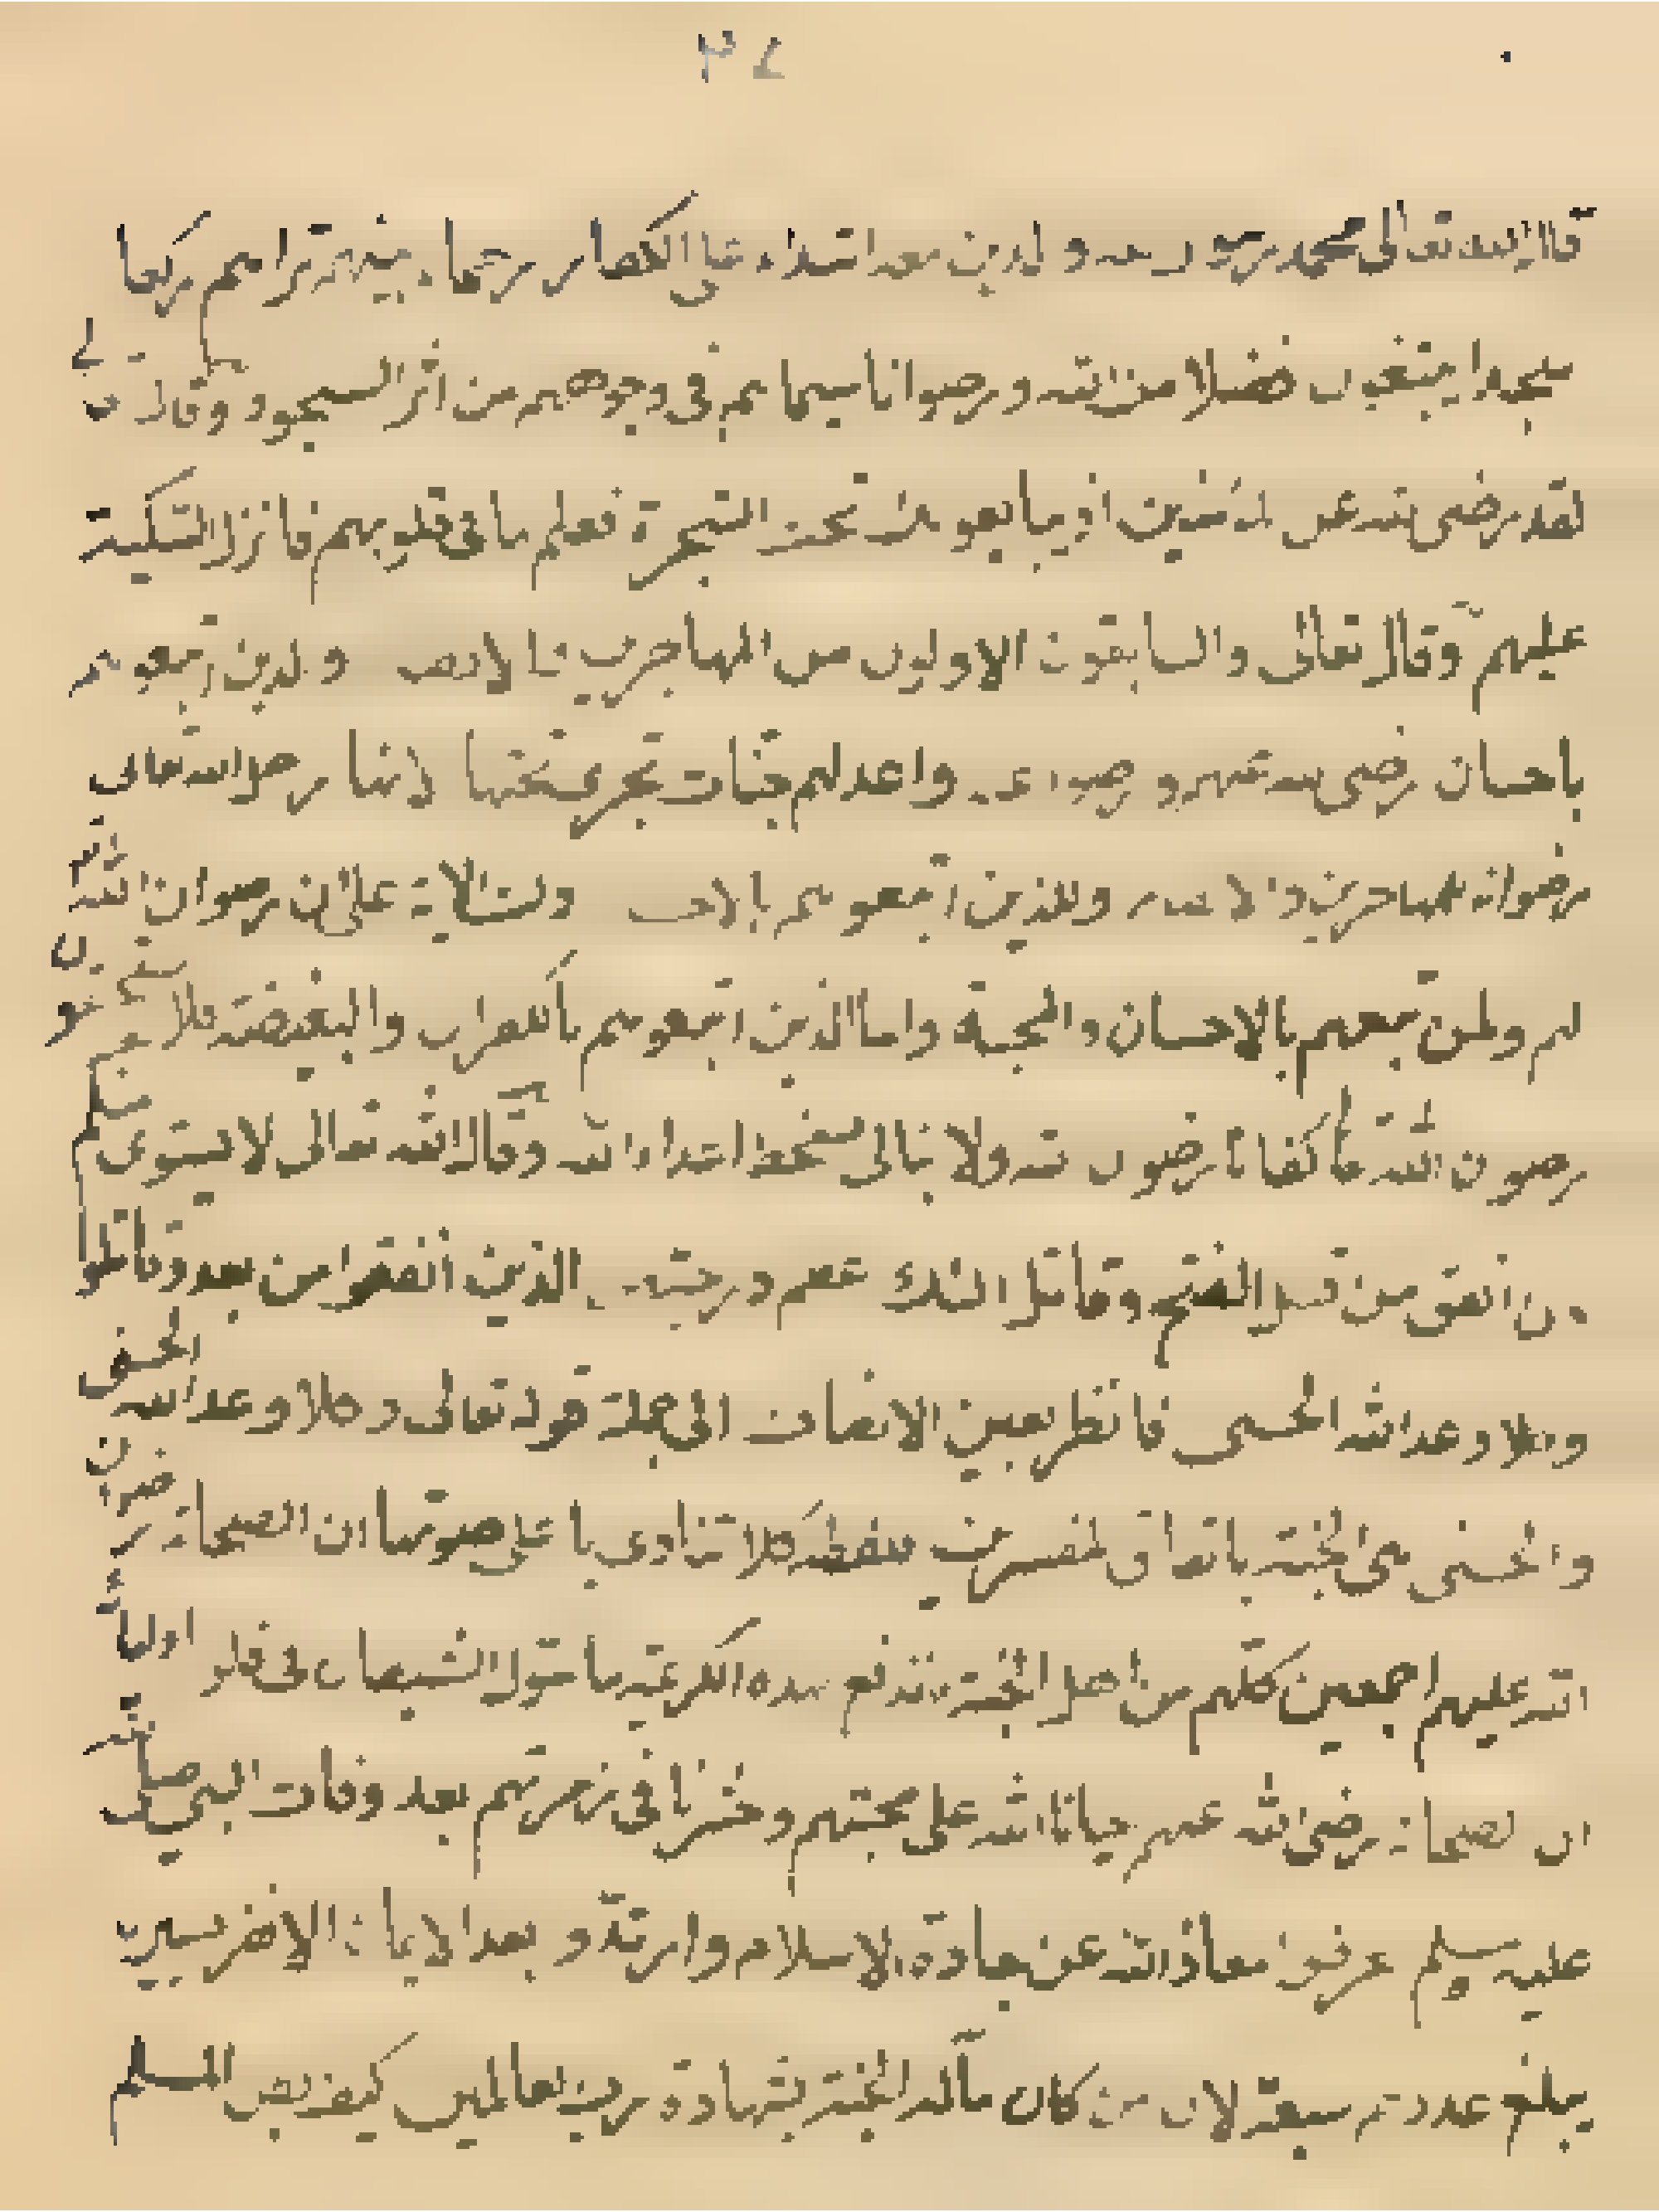 قال الله تعالى محمد رسول الله والذين معه اشداء على الكفار رحماء بينهم تراهم ركعا
سجدا يبتغون فضلا من الله ورضوانا سيماهم في وجوههم من اثر السجود وقال تعالى
لقد رضي الله عن المؤمنين اذ يبايعونك تحت الشجرة فعلم ما في قلوبهم فانزل السكينة
عليهم وقال تعالى والسابقون الاولون من المهاجرين والانصار والذين اتبعوهم
باحسان رضي الله عنهم ورضوا عنه واعد لهم جنات تجري تحتها الانهار جعل الله تعالى
رضوانه للمهاجرين والانصار وللذين اتبعوهم بالاحسان ودلت الاية على ان رضوان الله
لهم ولمن تبعهم بالاحسان والمحبة واما الذين اتبعوهم باللعن والبغضة فلا يستحقون
رضوان الله فاكفانا رضوان الله ولا نبالي بسخط اعداء الله وقال الله تعالى لا يستوي منكم
من انفق من قبل الفتح وقاتل اولئك اعظم درجة من الذين انفقوا من بعد وقاتلوا
وكلا وعد الله الحسنى فانظر بعين الانصاف الى جملة قوله تعالى وكلا وعد الله الحسنى
والحسنى هي الجنة باتفاق المفسرين فلفظة كلا تنادي باعلى صوتها ان الصحابة رضوان
الله عليهم اجمعين كلهم من اهل الجنة فتندفع بهذه الكريمة ما تقول الشيعة في
ان الصحابة رضي الله عنهم حيانا الله على محبتهم وحشرنا في زمرتهم بعد وفات النبي صلى الله
عليه وسلم انحرفوا معاذ الله عن جادة الاسلام وارتدوا بعد الايمان الا نفر يسير
يبلغ عددهم سبعة لان من كان مآله الجنة بشهادة رب العالمين كيف يظن المسلم